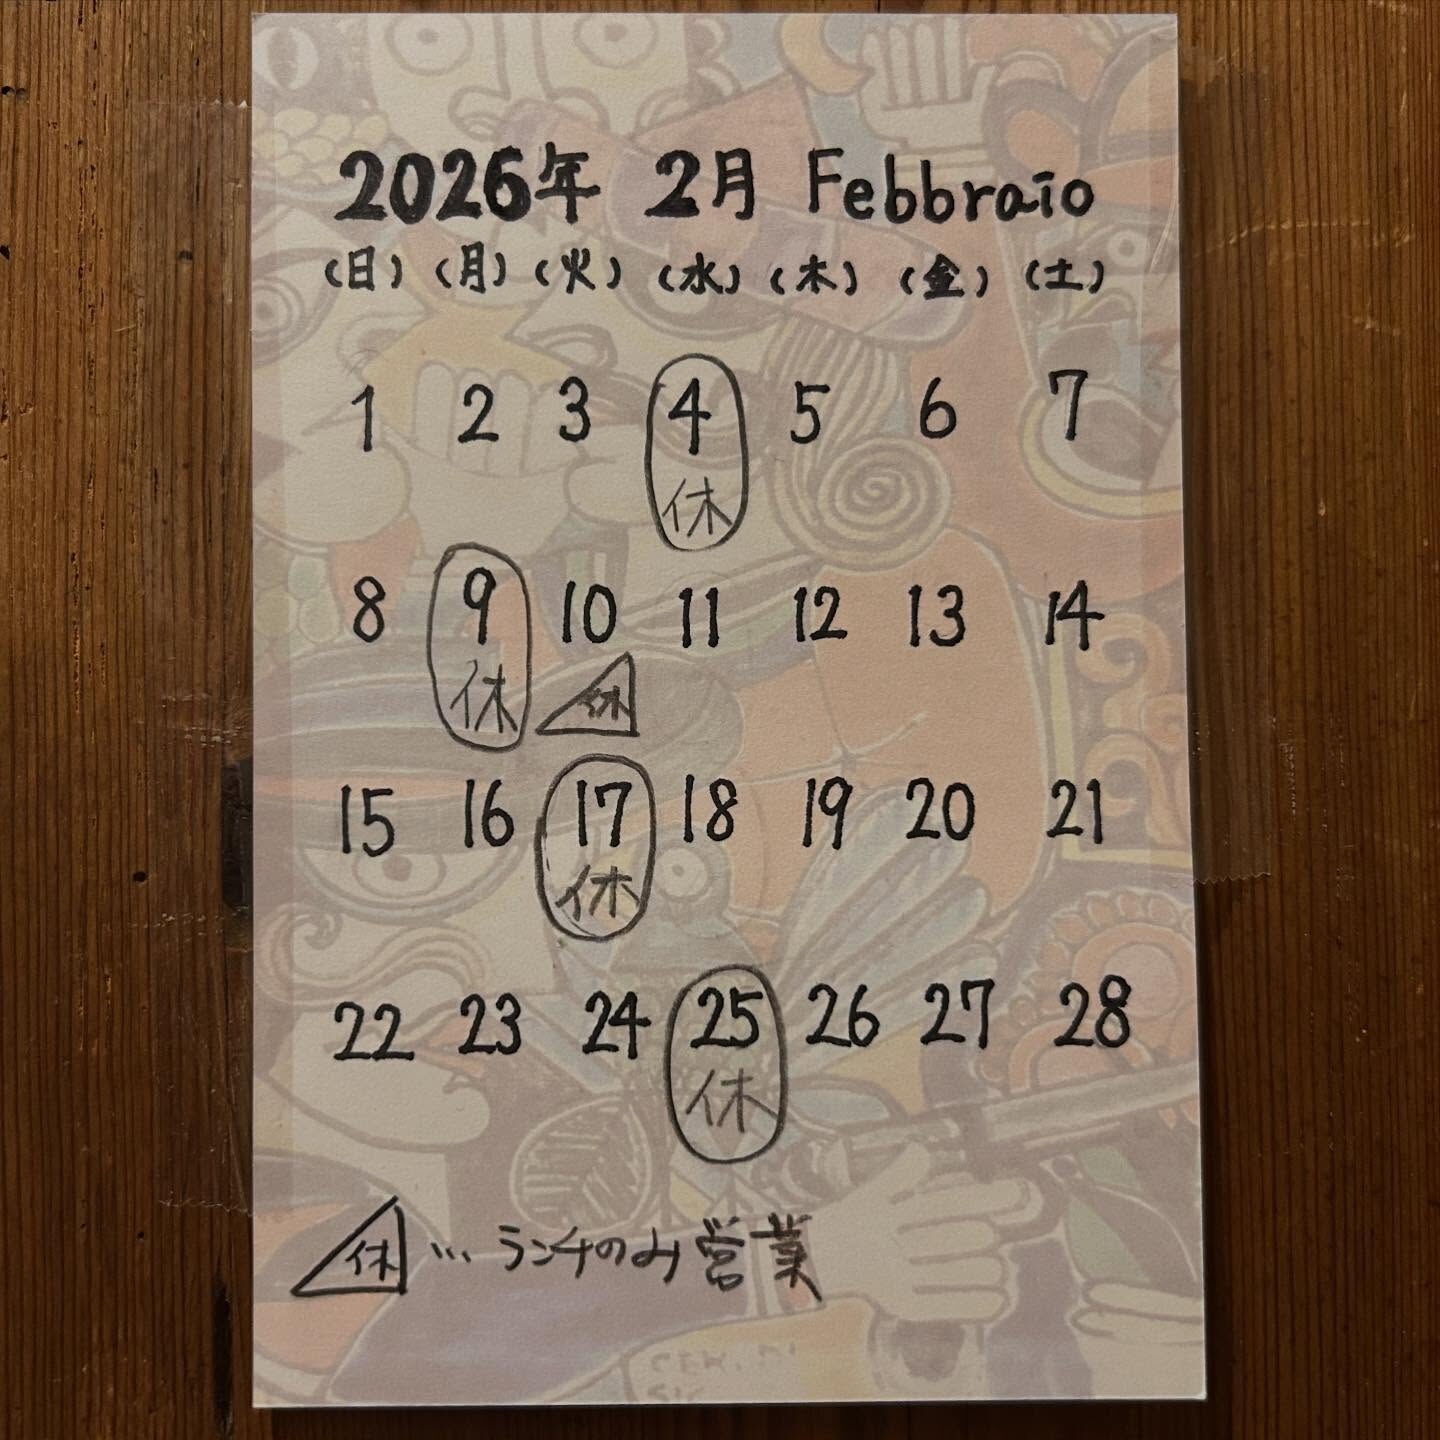 2026年 2月 Febbraio
(日) (月) (火) (水) (木) (金) (土)
1 2 3 4 5 6 7
休
8 9 10 11 12 13 14
休 休
15 16 17 18 19 20 21
休
22 23 24 25 26 27 28
休
休 … ランチのみ営業